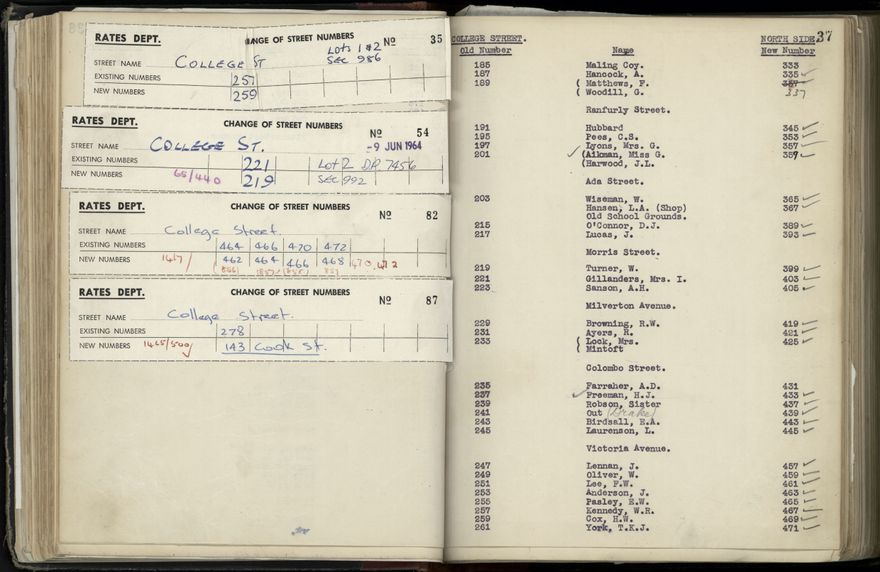 RATES DEPT.
CHANGE OF STREET NUMBERS
Nº 35
Lots 1 & 2
SEC 986
STREET NAME College St
EXISTING NUMBERS 257
NEW NUMBERS 259
RATES DEPT.
CHANGE OF STREET NUMBERS
Nº 54
-9 JUN 1964
STREET NAME COLLEGE ST.
EXISTING NUMBERS 221 Lot 2 D.P. 7456
NEW NUMBERS 65/440 219 SEC 992
RATES DEPT.
CHANGE OF STREET NUMBERS
Nº 82
STREET NAME College Street.
EXISTING NUMBERS 464 466 470 472
NEW NUMBERS 1417/ 462 464 466 468 470, 472
RATES DEPT.
CHANGE OF STREET NUMBERS
Nº 87
STREET NAME College Street.
EXISTING NUMBERS 278
NEW NUMBERS 1465/500/ 143 Cook St.
37
COLLEGE STREET. NORTH SIDE.
Old Number Name New Number
185 Maling Coy. 333
187 Hancock, A. 335
189 ( Matthews, F. 337
( Woodill, G. 337
Ranfurly Street.
191 Hubbard 345
195 Pees, C.S. 353
197 Lyons, Mrs. G. 357
201 (Aikman, Miss G. 357
(Harwood, J.L.
Ada Street.
203 Wiseman, W. 365
Hansen, L.A. (Shop) 367
Old School Grounds.
215 O'Connor, D.J. 389
217 Lucas, J. 393
Morris Street.
219 Turner, W. 399
221 Gillanders, Mrs. I. 403
223 Sanson, A.H. 405
Milverton Avenue.
229 Browning, R.W. 419
231 Ayers, R. 421
233 ( Lock, Mrs. 425
( Mintoft
Colombo Street.
235 Farraher, A.D. 431
237 Freeman, H.J. 433
239 Robson, Sister 437
241 Out (Drake) 439
243 Birdsall, E.A. 443
245 Laurenson, L. 445
Victoria Avenue.
247 Lennan, J. 457
249 Oliver, W. 459
251 Lee, F.W. 461
253 Anderson, J. 463
255 Pasley, E.W. 465
257 Kennedy, W.R. 467
259 Cox, H.W. 469
261 York, T.K.J. 471